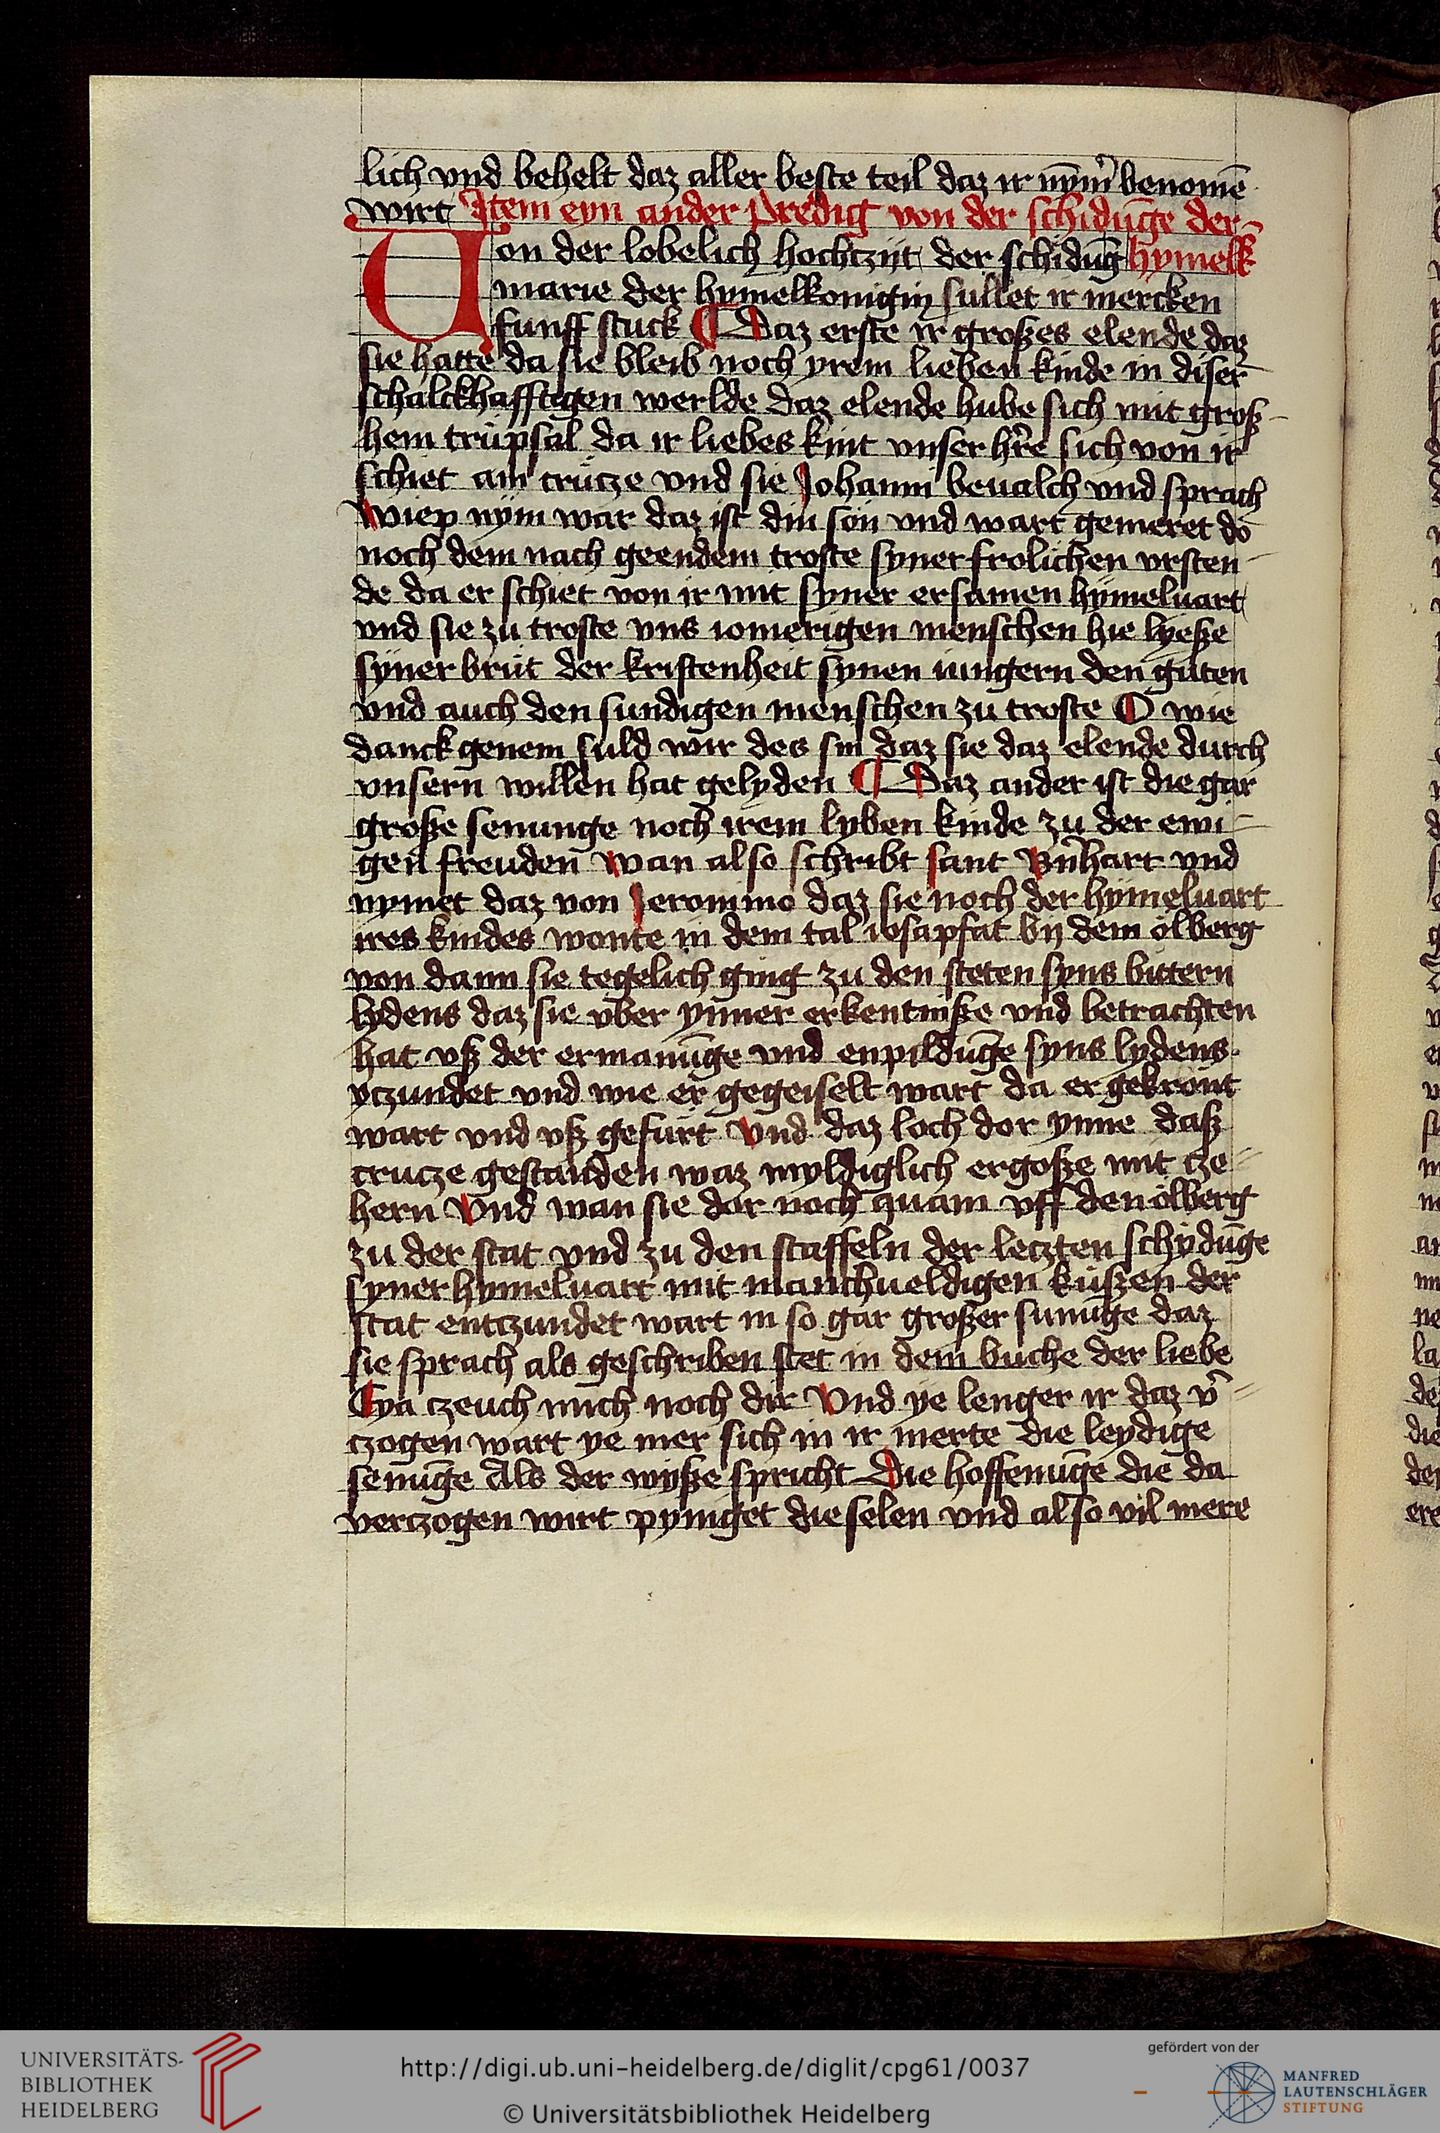 lich vnd behelt daz aller beste teil daz ir nȳm̉ benomē
wirt Item eyn ander predig von der schidūge der
Uon der lobelich hochtzijt der schidūg hymelk̄
marie der hymelkonigin sullet ir mercken
funff stuck ¶ Daz erste ir großes elende daz
sie hatte da sie bleib noch yrem lieben kinde in diser
schalckhafftigen werlde daz elende hube sich mit groß-
hem trüpsal da ir liebes kint vnser hr̄e sich von ir
schiet am crütze vnd sie Johanni beualch vnd sprach
Wiep nym war daz ist din son vnd wart gemeret do
noch dem nach geendem troste syner frolichen vrsten-
de da er schiet von ir mit syner ersamen hymeluart
vnd sie zu troste vns iomerigen menschen hie lyeße
syner brüt der kristenheit synen iungern den guten
vnd auch den sundigen menschen zu troste O wie
danck genem suld wir des sin daz sie daz elende durch
vnsern willen hat gelyden ¶ Daz ander ist die gar
große senunge noch irem lyben kinde zu der ewi-
gen freuden wan also schribt sant Bn̉hart vnd
nymet daz von Jeronimo daz sie noch der hymeluart
ires kindes wonte in dem tal iosapfat bij dem ölberg
von dann sie tegelich ging zu den steten syns bittern
lydens daz sie vber ynner erkentniße vnd betrachten
hat vß der ermanūge vnd enpildūge syns lydens
yczundet vnd wie er gegeiselt wart da er gekront
wart vnd vß gefürt Vnd daz loch dor ynne daß
crucze gestanden waz myldiglich ergoße mit cze-
hern Vnd wan sie dar noch quam vff den ölberg
zu der stat vnd zu den staffeln der leczten schydūge
syner hymeluart mit manchueldigen küßen der
stat entczundet wart in so gar großer sunūge daz
sie sprach als geschriben stet in dem buche der liebe
Eya czeuch mich noch dir Vnd ye lenger ir daz v̉-
czogen wart ye mer sich in ir merte die leydige
senūge Als der wyße spricht Die hoffenūge die da
verczogen wirt pyniget die selen vnd also vil mere
UNIVERSITÄTS-
BIBLIOTHEK
HEIDELBERG
http://digi.ub.uni-heidelberg.de/diglit/cpg61/0037
© Universitätsbibliothek Heidelberg
gefördert von der
MANFRED
LAUTENSCHLÄGER
STIFTUNG